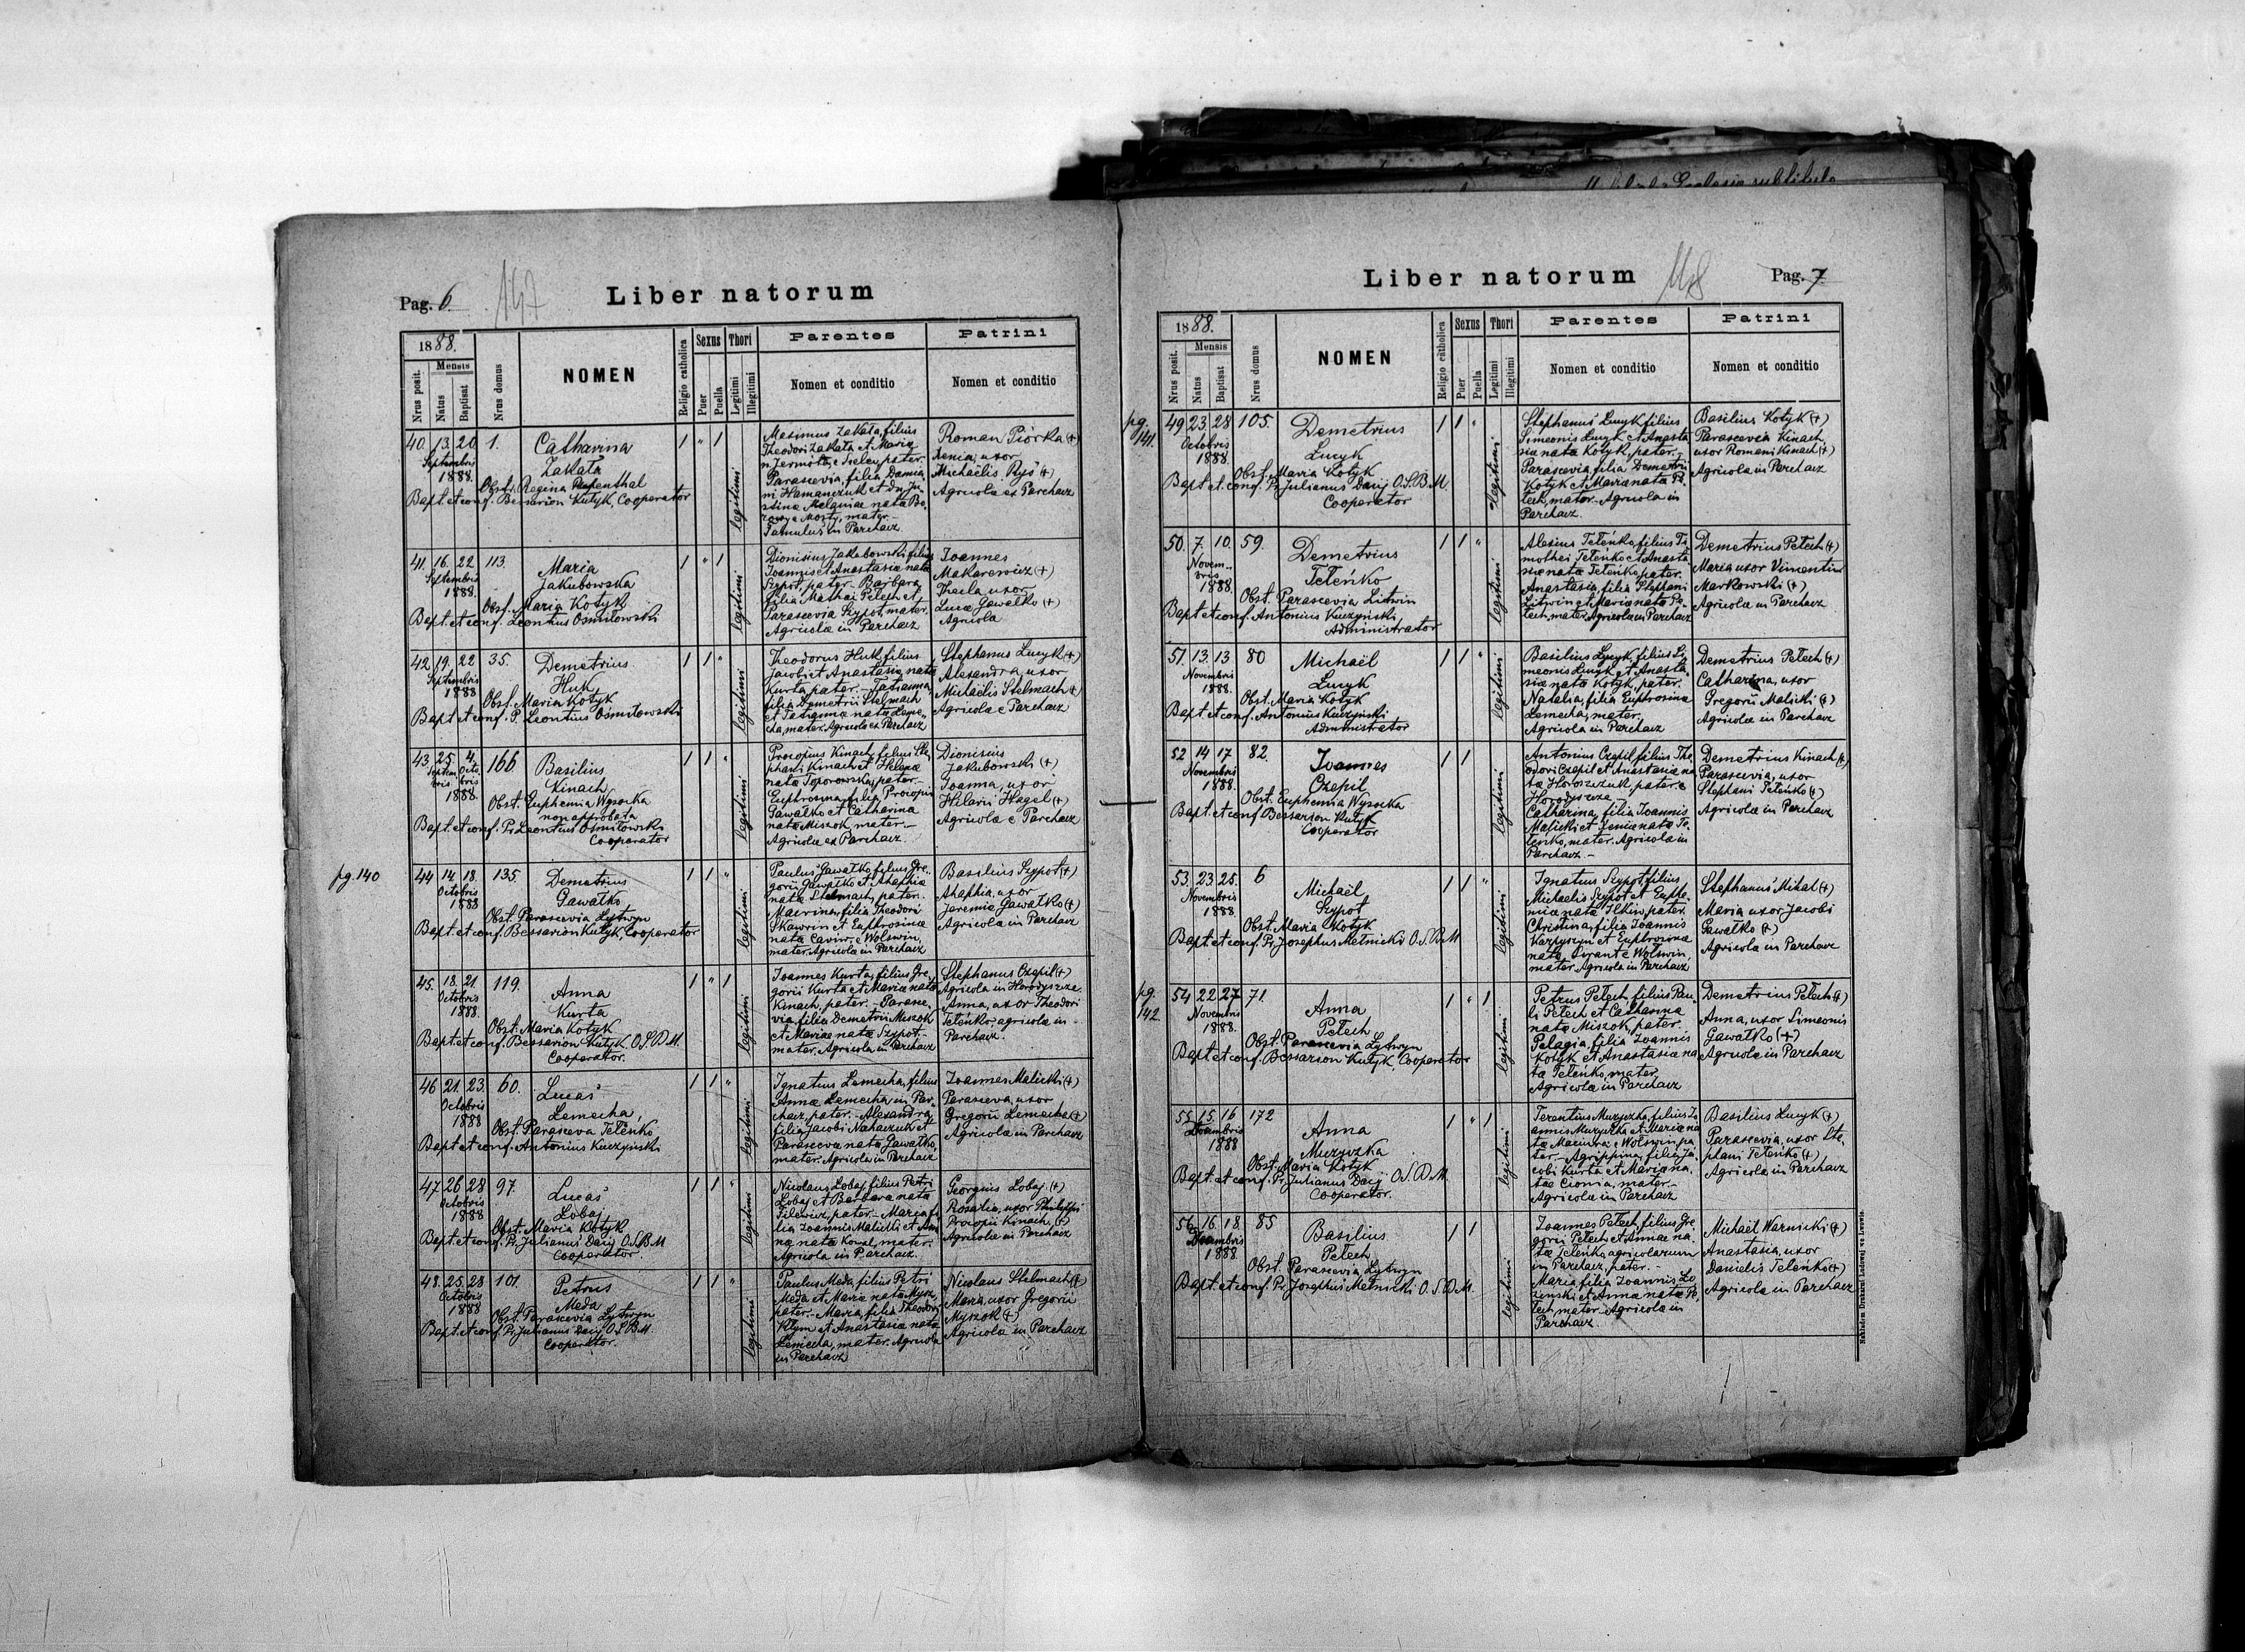 Pag. 6
147
Liber natorum
1888.
Nrus posit.
Mensis
Natus
Baptisat
Nrus domus
NOMEN
Religio catholica
Sexus
Puer
Puella
Thori
Legitimi
Illegitimi
Parentes
Nomen et conditio
Patrini
Nomen et conditio
40. 13. 20 1. Catharina
Septembris Zakała
1888.
Obst. Regina
Bapt. et conf. Bessarion Kutyk, Cooperator
legitimi
Maximus Zakała, filius
Theodori Zakała et Maria
pater.
Parascevia, filia Damia
ni Hamanczuk et
mater.
Famulus in Parchacz
Roman Piórka (+)
Xenia, uxor
Michaëlis Ryś (+)
Agricola ex Parchacz
41. 16. 22 113. Maria
Septembris Jakubowska
1888.
Obst. Maria Kotyk
Bapt. et conf. Leontius Osmiłowski
legitimi
Dionisius Jakubowski, filius
Joannis et Anastasiæ nata
Szypot, pater. Barbara
filia Mathei Petech et
Parascevia Szypot, mater.
Agricola in Parchacz
Joannes
Makarewicz (+)
Thecla uxor
Lucæ Gawałko (+)
Agricola
42. 19. 22 35. Demetrius
Septembris Huk
1888
Obst. Maria Kotyk
Bapt. et conf. P. Leontius Osmiłowski
legitimi
Theodorus Huk, filius
Jacobi et Anastasiæ nata
Kurta, pater. Tatianna,
filia Demetrii Stelmach
et Tatianna nata Leme-
cha, mater. Agricola ex Parchacz
Stephanus Lucyk (+)
Alexandra, uxor
Michaëlis Stelmach (+)
Agricola e Parchacz
43. 25. 4. 166. Basilius
Septembris Octobris Kinach
1888.
Obst. Euphemia Wysocka
non approbata
Bapt. et conf. P. Leontius Osmiłowski
Cooperator
legitimi
Procopius Kinach, filius Ste
phani Kinach et Helenæ
nata Toporowska, pater.
Euphrosina, filia Procopii
Gawałko et Catharina
nata Miszok, mater.
Agricola ex Parchacz.
Dionisius
Jakubowski (+)
Joanna, uxor
Hilarii Hagel (+)
Agricola e Parchacz
pg. 140
44 14. 18. 135. Demetrius
Octobris Gawałko
1888
Obst. Parascevia Lytwyn
Bapt. et conf. Bessarion Kutyk, Cooperator
legitimi
Paulus Gawałko, filius Gre-
gorii Gawałko et Ahaphia
nata Stelmach, pater.
Macrina, filia Theodori
Skawron et Euphrosinæ
nata Cavin, e Wolswin,
mater. Agricola in Parchacz
Basilius Szypot (+)
Ahaphia, uxor
Jeremiæ Gawałko (+)
Agricola in Parchacz
45. 18. 21 119. Anna
Octobris Kurta
1888.
Obst. Maria Kotyk
Bapt. et conf. Bessarion Kutyk, O.S.B.M.
Cooperator.
legitimi
Joannes Kurta, filius Gre-
gorii Kurta et Mariæ nata
Kinach, pater. Parasce-
via, filia Demetrii Miszok
et Mariæ nata Szypot
mater. Agricola in Parchacz
Stephanus Czepil (+)
Agricola in Horodyszcze.
Anna, uxor Theodori
Teteńko, agricola in
Parchacz.
46 21. 23. 60. Lucas
Octobris Lemecha,
1888
Obst. Parasceva Teteńko
Bapt. et conf. Antonius Kuczyński
legitimi
Ignatius Lemecha, filius
Annæ Lemecha, in Par-
chacz, pater. Alexandra
filia Jacobi Nahaczuk et
Parasceva nata Gawałko,
mater. Agricola in Parchacz
Joannes Malicki (+)
Parasceva, uxor
Gregorii Lemecha (+)
Agricola in Parchacz
47 26 28 97. Lucas
Octobris Łobaj
1888
Obst. Maria Kotyk
Bapt. et conf. P. Julianus Dacij O.S.B.M.
Cooperator.
legitimi
Nicolaus Łobaj, filius Petri
Łobaj et Barbara nata
Filewicz, pater. Maria fi
lia Joannis Malicki et An
næ nata Kowal, mater.
Agricola in Parchacz.
Georgius Łobaj (+)
Rosalia, uxor Philippi
Procopii Kinach, (+)
Agricola in Parchacz
48. 25. 28 101. Petrus
Octobris Meda
1888
Obst. Parascevia Lytwyn
Bapt. et conf. P. Julianus Dacij O.S.B.M.
Cooperator.
legitimi
Paulus Meda, filius Petri
Meda et Mariæ nata
pater. Maria, filia Theodori
Klym et Anastasiæ nata
Lemecha, mater. Agricola
in Parchacz
Nicolaus Stelmach (+)
Maria, uxor Gregorii
Myszok (+)
Agricola in Parchacz
Liber natorum
148
Pag. 7
1888.
Nrus posit.
Mensis
Natus
Baptisat
Nrus domus
NOMEN
Religio catholica
Sexus
Puer
Puella
Thori
Legitimi
Illegitimi
Parentes
Nomen et conditio
Patrini
Nomen et conditio
pg. 141.
49 23. 28 105. Demetrius
Octobris Lucyk
1888.
Obst. Maria Kotyk
Bapt. et conf. P. Julianus Dacij O.S.B.M.
Cooperator
legitimi
Stephanus Lucyk filius
Simeonis Lucyk et Anasta
siæ nata Kotyk, pater.
Parascevia, filia Demetrii
Kotyk et Maria nata Pe
tech, mater. Agricola in
Parchacz.
Basilius Kotyk (+)
Parascevia Kinach,
uxor Romani Kinach (+)
Agricola in Parchacz
50. 7. 10. 59. Demetrius
Novembris Teteńko
1888.
Obst. Parascevia Litwin
Bapt. et conf. Antonius Kuczyński
Administrator
legitimi
Alexius Teteńko, filius Ti
mothei Teteńko et Anasta
siæ nata Teteńko, pater.
Anastasia, filia Stephani
Litwin et Maria nata Pe-
tech, mater. Agricola in Parchacz
Demetrius Petech (+)
Maria uxor Vimentin
Markowski (+)
Agricola in Parchacz
51. 13. 13. 80 Michaël
Novembris Lucyk
1888.
Obst. Maria Kotyk
Bapt. et conf. Antonius Kuczyński
Administrator
legitimi
Basilius Lucyk, filius Si
meonis Lucyk et Anasta
siæ nata Kotyk, pater.
Natalia, filia Euphrosina
Lemecha, mater.
Agricola in Parchacz
Demetrius Petech (+)
Catharina, uxor
Gregorii Malicki (+)
Agricola in Parchacz
52 14 17 82. Joannes
Novembris Czepil
1888.
Obst. Euphemia Wysocka
Bapt. et conf Bessarion Kutyk
Cooperator
legitimi
Antonius Czepil, filius The
odori Czepil et Anastasiæ na
ta Horoszczuk, pater. e
Horodyszcze
Catharina, filia Joannis
Malicki et Xenia nata Te-
teńko, mater. Agricola in
Parchacz.
Demetrius Kinach (+)
Parascevia, uxor
Stephani Teteńko (+)
Agricola in Parchacz
53. 23. 25. 6 Michaël
Novembris Szypot
1888.
Obst. Maria Kotyk
Bapt. et conf. P. Josephus Metnicki O.S.B.M.
legitimi
Ignatius Szypot, filius
Michaelis Szypot et Euphe-
miæ nata Ilkiw, pater.
Christina, filia Joannis
et Euphrosinæ
nata e Wolswin,
mater. Agricola in Parchacz
Stephanus Mikał (+)
Maria uxor Jacobi
Gawałko (+)
Agricola in Parchacz
pg. 142.
54 22 27 71. Anna
Novembris Petech
1888.
Obst. Parascevia Lytwyn
Bapt. et conf. Bessarion Kutyk, Cooperator
legitimi
Petrus Petech, filius Pau-
li Petech et Catharina
nata Miszok, pater.
Pelagia, filia Joannis
Kotyk et Anastasia na
ta Teteńko, mater.
Agricola in Parchacz
Demetrius Petech (+)
Anna, uxor Simeonis
Gawałko (+)
Agricola in Parchacz
55. 15. 16 172 Anna
Decembris Muzyczka
1888
Obst. Maria Kotyk
Bapt. et conf. P. Julianus Dacij O.S.B.M.
Cooperator.
legitimi
Terentius Muzyczka, filius Jo
annis Muzyczka et Mariæ na
ta e Wolswin, pa
ter. Agrippina, filia Ja
cobi Kurta et Maria na
ta Cionia, mater.
Agricola in Parchacz
Basilius Lucyk (+)
Parascevia, uxor Ste-
phani Teteńko (+)
Agricola in Parchacz
56. 16. 18. 85 Basilius
Decembris Petech
1888.
Obst. Parascevia Lytwyn
Bapt. et conf. P. Josephus Metnicki O.S.B.M.
legitimi
Joannes Petech, filius Gre
gorii Petech et Annæ na-
ta Teteńko agricolarum
in Parchacz, pater.
Maria, filia Joannis Lo
zenski et Anna nata Pe
tech, mater. Agricola in
Parchacz.
Michaël Warnicki (+)
Anastasia, uxor
Danielis Teteńko (+)
Agricola in Parchacz
Nakładem Drukarni Ludowej we Lwowie.